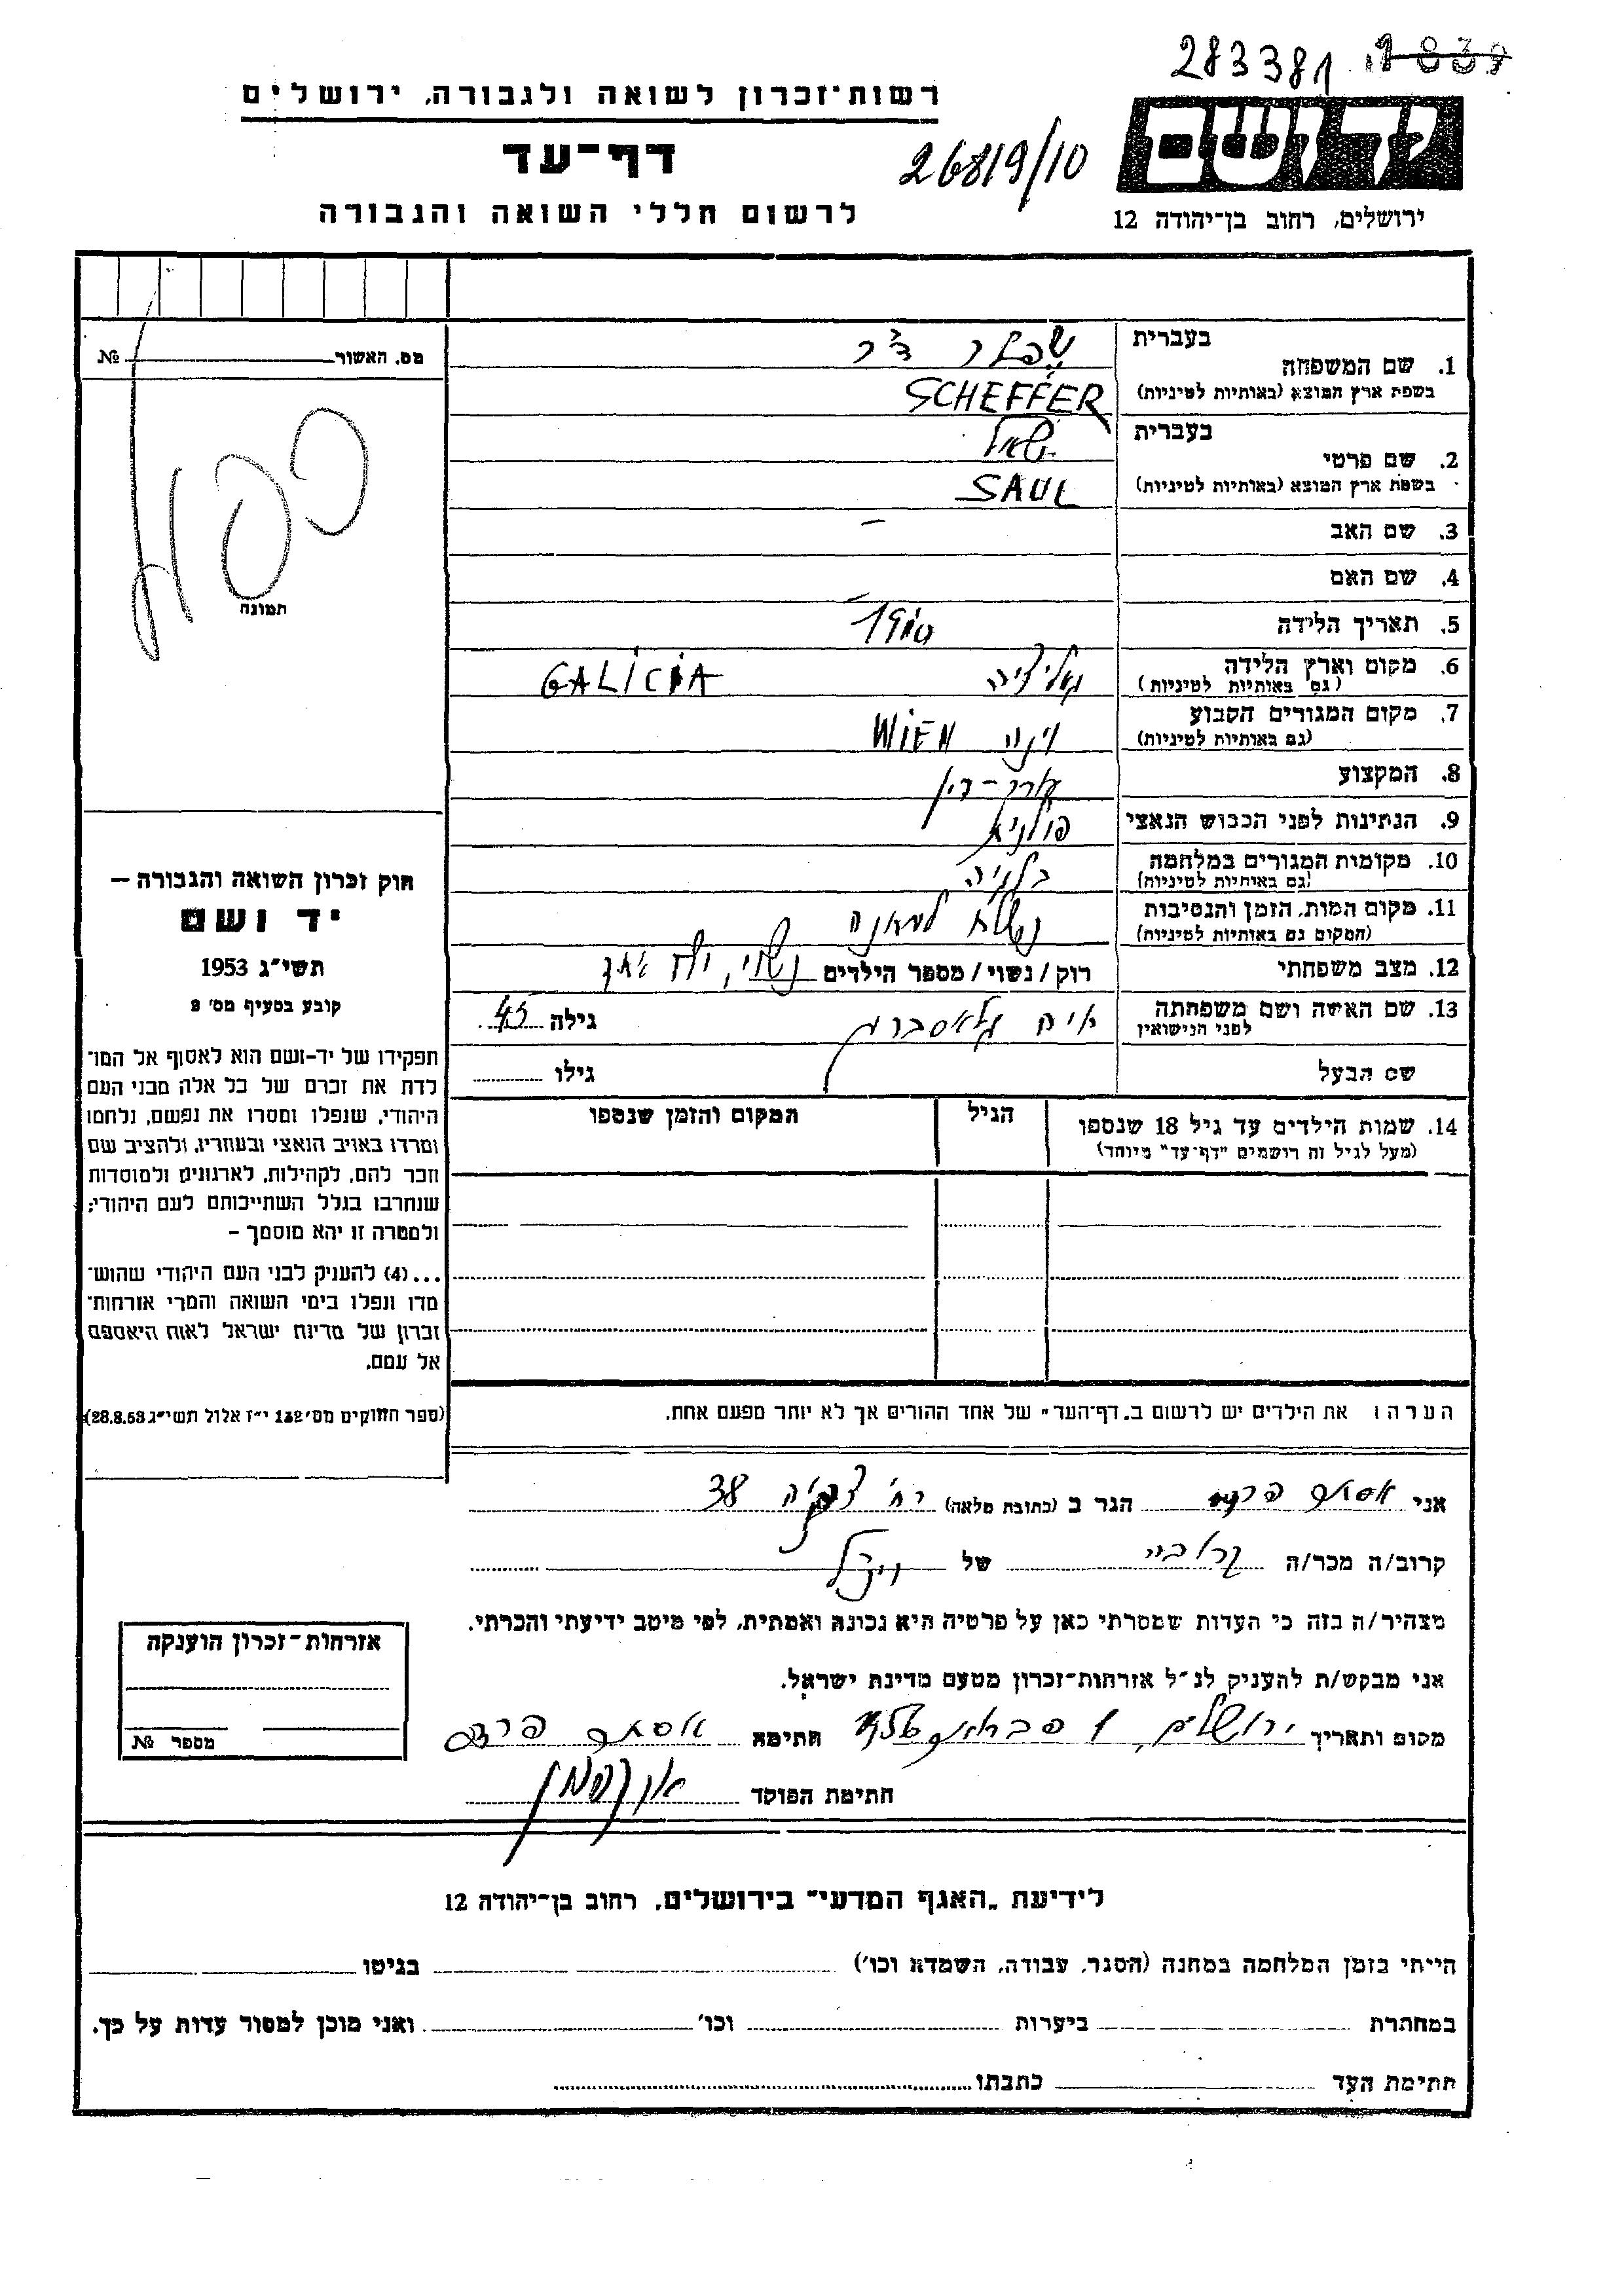 283381 1839
רשות־זכרון לשואה ולגבורה, ירושלים
יד ושם
דף־עד
26819/10
לרשום חללי השואה והגבורה
ירושלים, רחוב בן־יהודה 12
מס. האשור № 
בעברית
1. שם המשפחה
שפלר ד"ר
(בשפת ארץ המוצא (באותיות לטיניות
SCHEFFER
בעברית
2. שם פרטי
שאול
(בשפת ארץ המוצא (באותיות לטיניות
SAUL
3. שם האב –
4. שם האם –
תמונה
5. תאריך הלידה 1900
6. מקום וארץ הלידה גאליציה GALICIA
(גם באותיות לטיניות)
7. מקום המגורים הקבוע וינה WIEN
(גם באותיות לטיניות)
8. המקצוע עורך-דין
9. הנתינות לפני הכבוש הנאצי פולנית
10. מקומות המגורים במלחמה בלגיה
(גם באותיות לטיניות)
11. מקום המות, הזמן והנסיבות נשלח למחנה
(המקום גם באותיות לטיניות)
12. מצב משפחתי רוק / נשוי / מספר הילדים נשוי, ילד אחד
13. שם האשה ושם משפחתה לפני הנישואין גילה 45
שם הבעל גילו
14. שמות הילדים עד גיל 18 שנספו הגיל המקום והזמן שנספו
(מעל לגיל זה רושמים "דף־עד" מיוחד)
הערה: את הילדים יש לרשום ב„דף־העד" של אחד ההורים אך לא יותר מפעם אחת.
חוק זכרון השואה והגבורה –
יד ושם
תשי"ג 1953
קובע בסעיף מס' 8
תפקידו של יד-ושם הוא לאסוף אל המו־
לדת את זכרם של כל אלה מבני העם
היהודי, שנפלו ומסרו את נפשם, נלחמו
ומרדו באויב הנאצי ובעוזריו, ולהציב שם
וזכר להם, לקהילות, לארגונים ולמוסדות
שנחרבו בגלל השתייכותם לעם היהודי;
ולמטרה זו יהא מוסמך –
...(4) להעניק לבני העם היהודי שהוש־
מדו ונפלו בימי השואה והמרי אזרחות־
זכרון של מדינת ישראל לאות היאספם
אל עמם.
(ספר החוקים מס' 132 י"ז אלול תשי"ג 28.8.53)
אני אסתר הגר ב (כתובת מלאה) רח' 38
קרוב/ה מכר/ה של
מצהיר/ה בזה כי העדות שמסרתי כאן על פרטיה היא נכונה ואמתית, לפי מיטב ידיעתי והכרתי.
אני מבקש/ת להעניק לנ"ל אזרחות־זכרון מטעם מדינת ישראל.
מקום ותאריך ירושלים, 1 פברואר חתימה אסתר
חתימת הפוקד
אזרחות־זכרון הוענקה
מספר №
לידיעת „האגף המדעי" בירושלים, רחוב בן־יהודה 12
הייתי בזמן המלחמה במחנה (הסגר, עבודה, השמדה וכו') בגיטו
במחתרת ביערות וכו' ואני מוכן למסור עדות על כך.
חתימת העד כתבתו